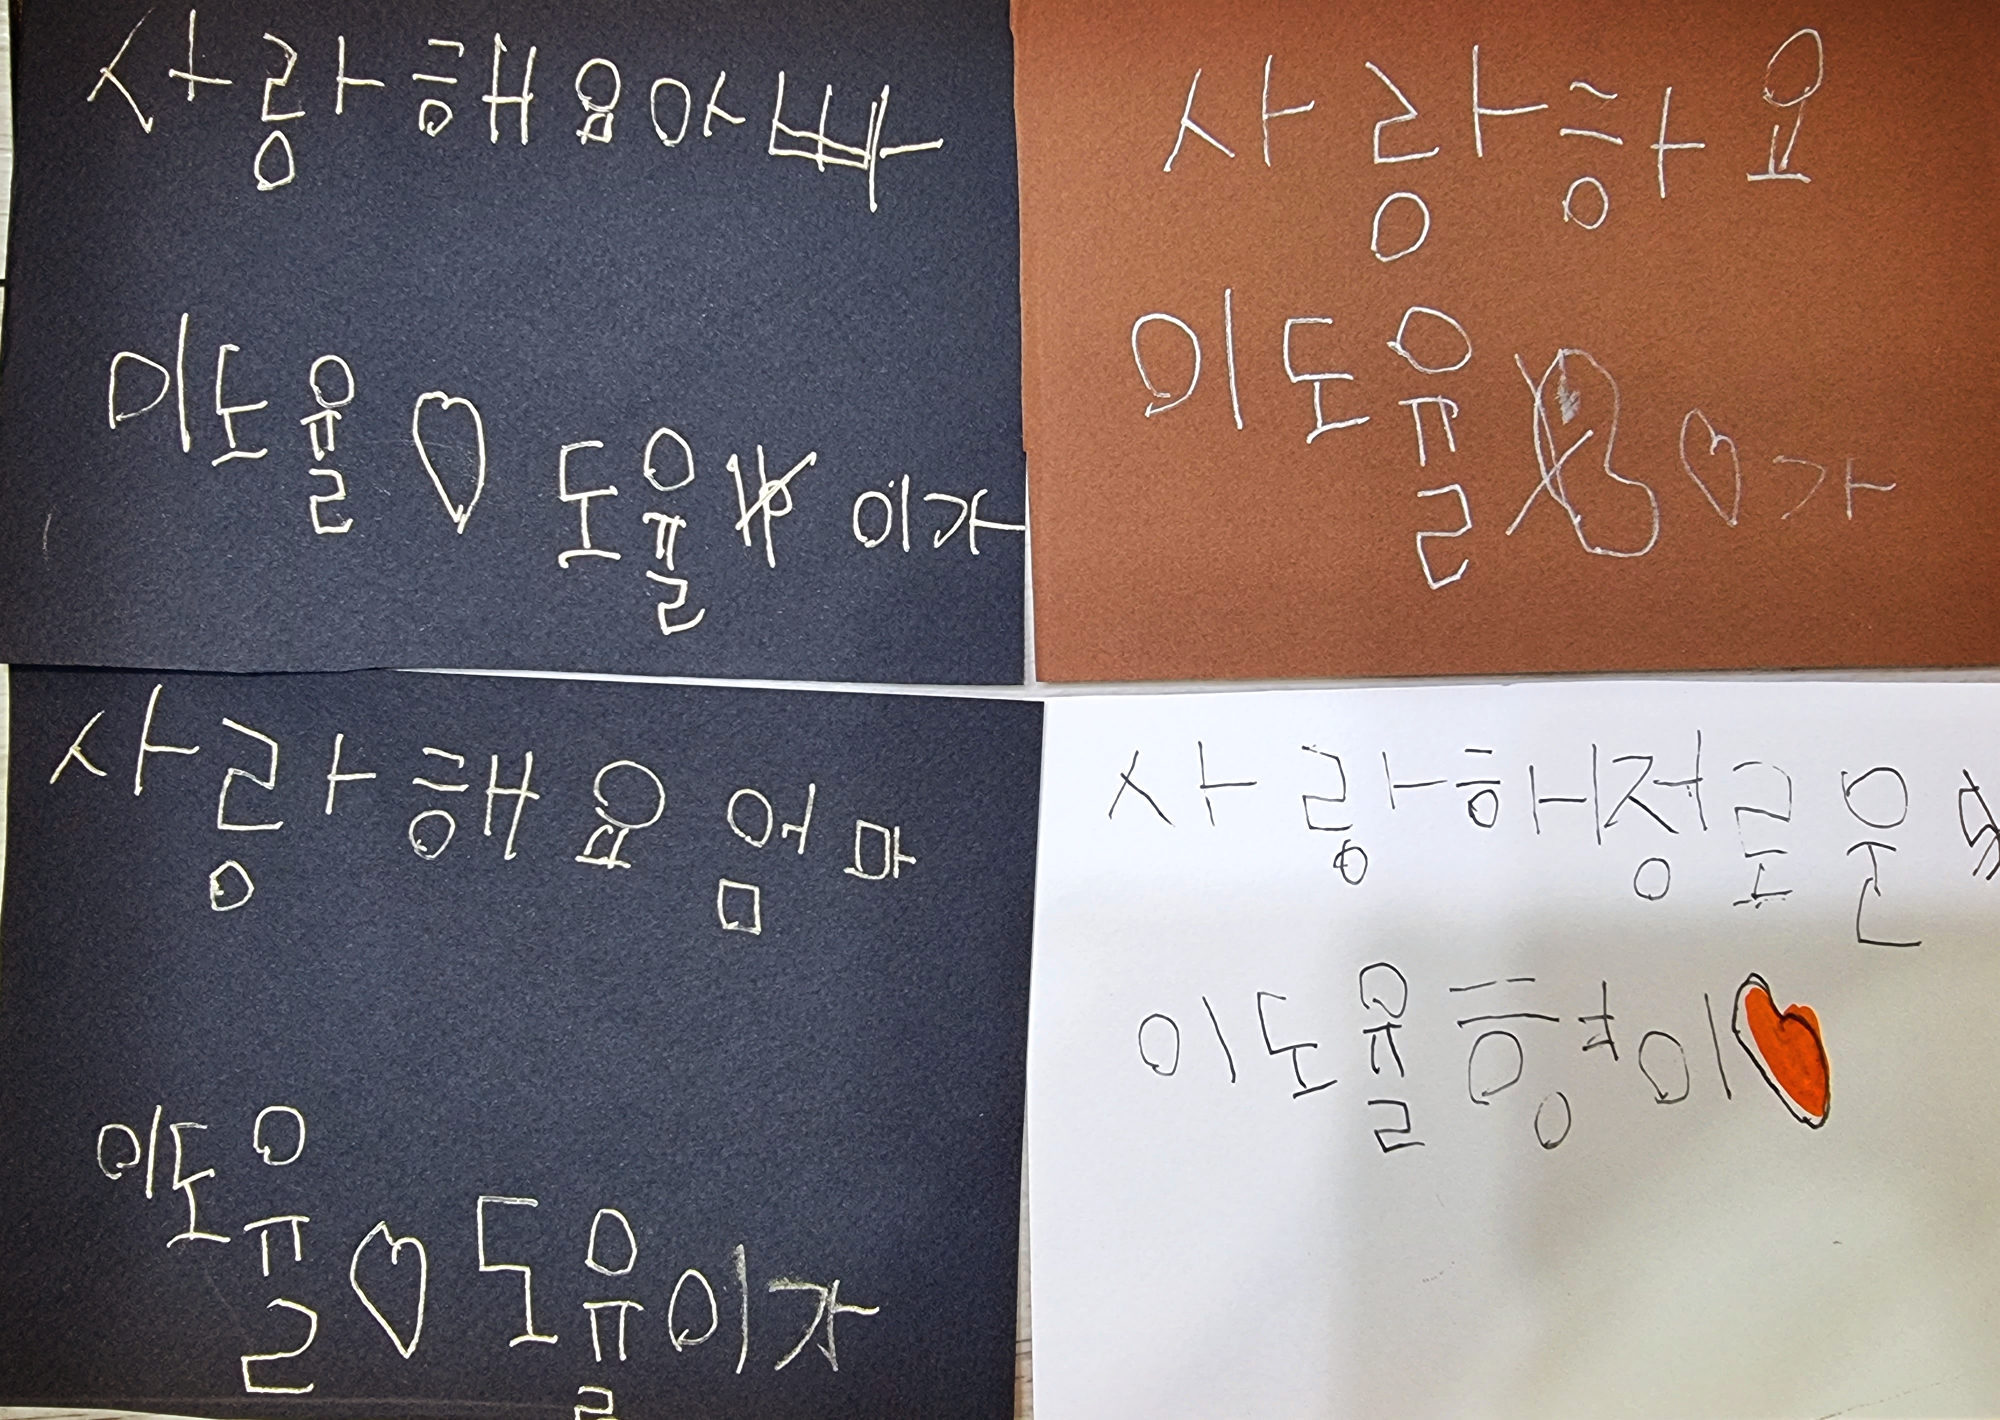 사랑해요아빠
이도율♡ 도율이가
사랑하요
이도율♡가
사랑해요엄마
이도율♡도율이가
사랑해정로운
이도율형이♥